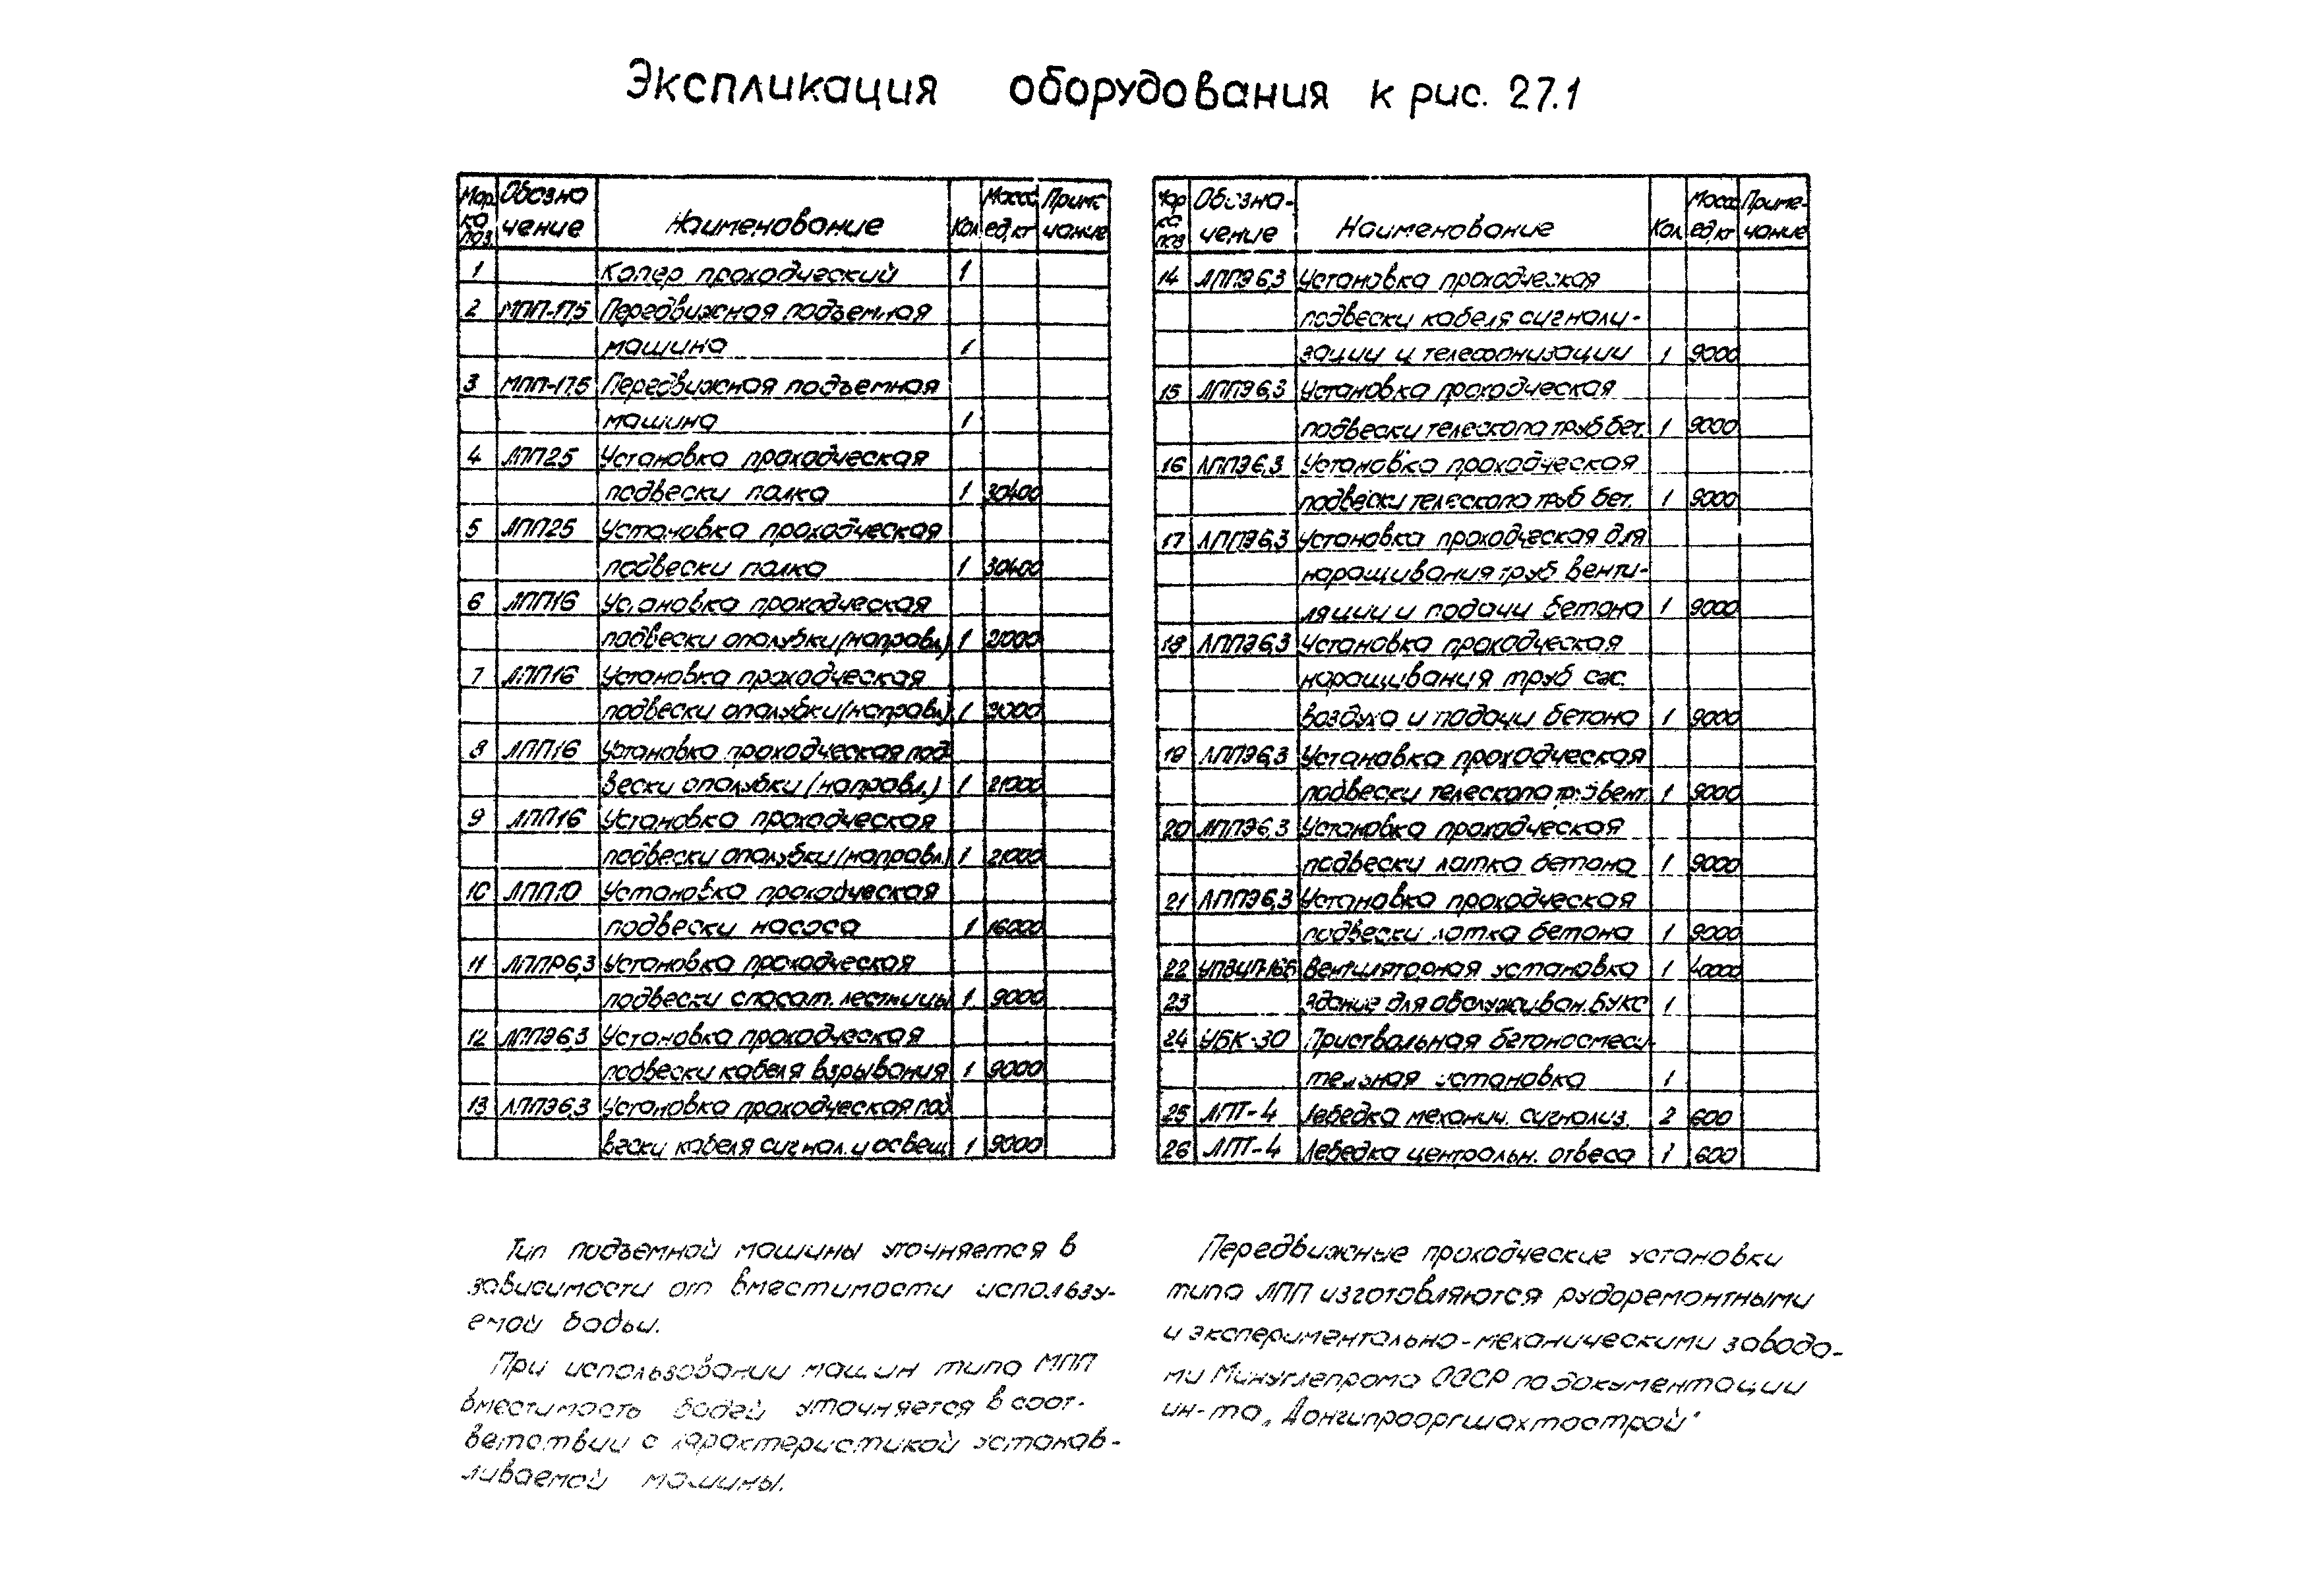 Экспликация оборудования к рис. 27.1
Мар Обозна Масса Приме
ка чение Наименование Кол ед,кг чание
поз
1 Копер проходческий 1
2 МПП-17,5 Передвижная подъемная
машина 1
3 МПП-17,5 Передвижная подъемная
машина 1
4 ЛПП25 Установка проходческая
подвески полка 1 30400
5 ЛПП25 Установка проходческая
подвески полка 1 30400
6 ЛПП16 Установка проходческая
подвески опалубки (направл.) 1 21000
7 ЛПП16 Установка проходческая
подвески опалубки (направл.) 1
8 ЛПП16 Установка проходческая под
вески опалубки (направл.) 1 21000
9 ЛПП16 Установка проходческая
подвески опалубки (направл.) 1 21000
10 ЛПП10 Установка проходческая
подвески насоса 1 16000
11 ЛППР6,3 Установка проходческая
подвески спасат. лестницы 1 9000
12 ЛППЭ6,3 Установка проходческая
подвески кабеля взрывания 1 9000
13 ЛППЭ6,3 Установка проходческая под
вески кабеля сигнал. и освещ 1 9000
Мар Обозна- Масса Приме-
ка чение Наименование Кол ед,кг чание
поз
14 ЛППЭ6,3 Установка проходческая
подвески кабеля сигнали-
зации и телефонизации 1 9000
15 ЛППЭ6,3 Установка проходческая
подвески телескопа труб бет. 1 9000
16 ЛППЭ6,3 Установка проходческая
подвески телескопа труб бет. 1 9000
17 ЛППЭ6,3 Установка проходческая для
наращивания труб венти-
ляции и подачи бетона 1 9000
18 ЛППЭ6,3 Установка проходческая
наращивания труб сж.
воздуха и подачи бетона 1 9000
19 ЛППЭ6,3 Установка проходческая
подвески телескопа труб вент. 1 9000
20 ЛППЭ6,3 Установка проходческая
подвески лотка бетона 1 9000
21 ЛППЭ6,3 Установка проходческая
подвески лотка бетона 1 9000
22 Вентиляторная установка 1 40000
23 Здание для обслуживан. БУКС 1
24 УБК-30 Приствольная бетоносмеси-
тельная установка 1
25 ЛПТ-4 Лебедка механич. сигнализ. 2 600
26 ЛПТ-4 Лебедка центральн. отвеса 1 600
Тип подъемной машины уточняется в
зависимости от вместимости использу-
емой бадьи.
При использовании машин типа МПП
вместимость бадей уточняется в соот-
ветствии с характеристикой устанав-
ливаемой машины.
Передвижные проходческие установки
типа ЛПП изготовляются рудоремонтными
и экспериментально-механическими завода-
ми Минуглепрома СССР по документации
ин-та „Донгипрооргшахтострой"